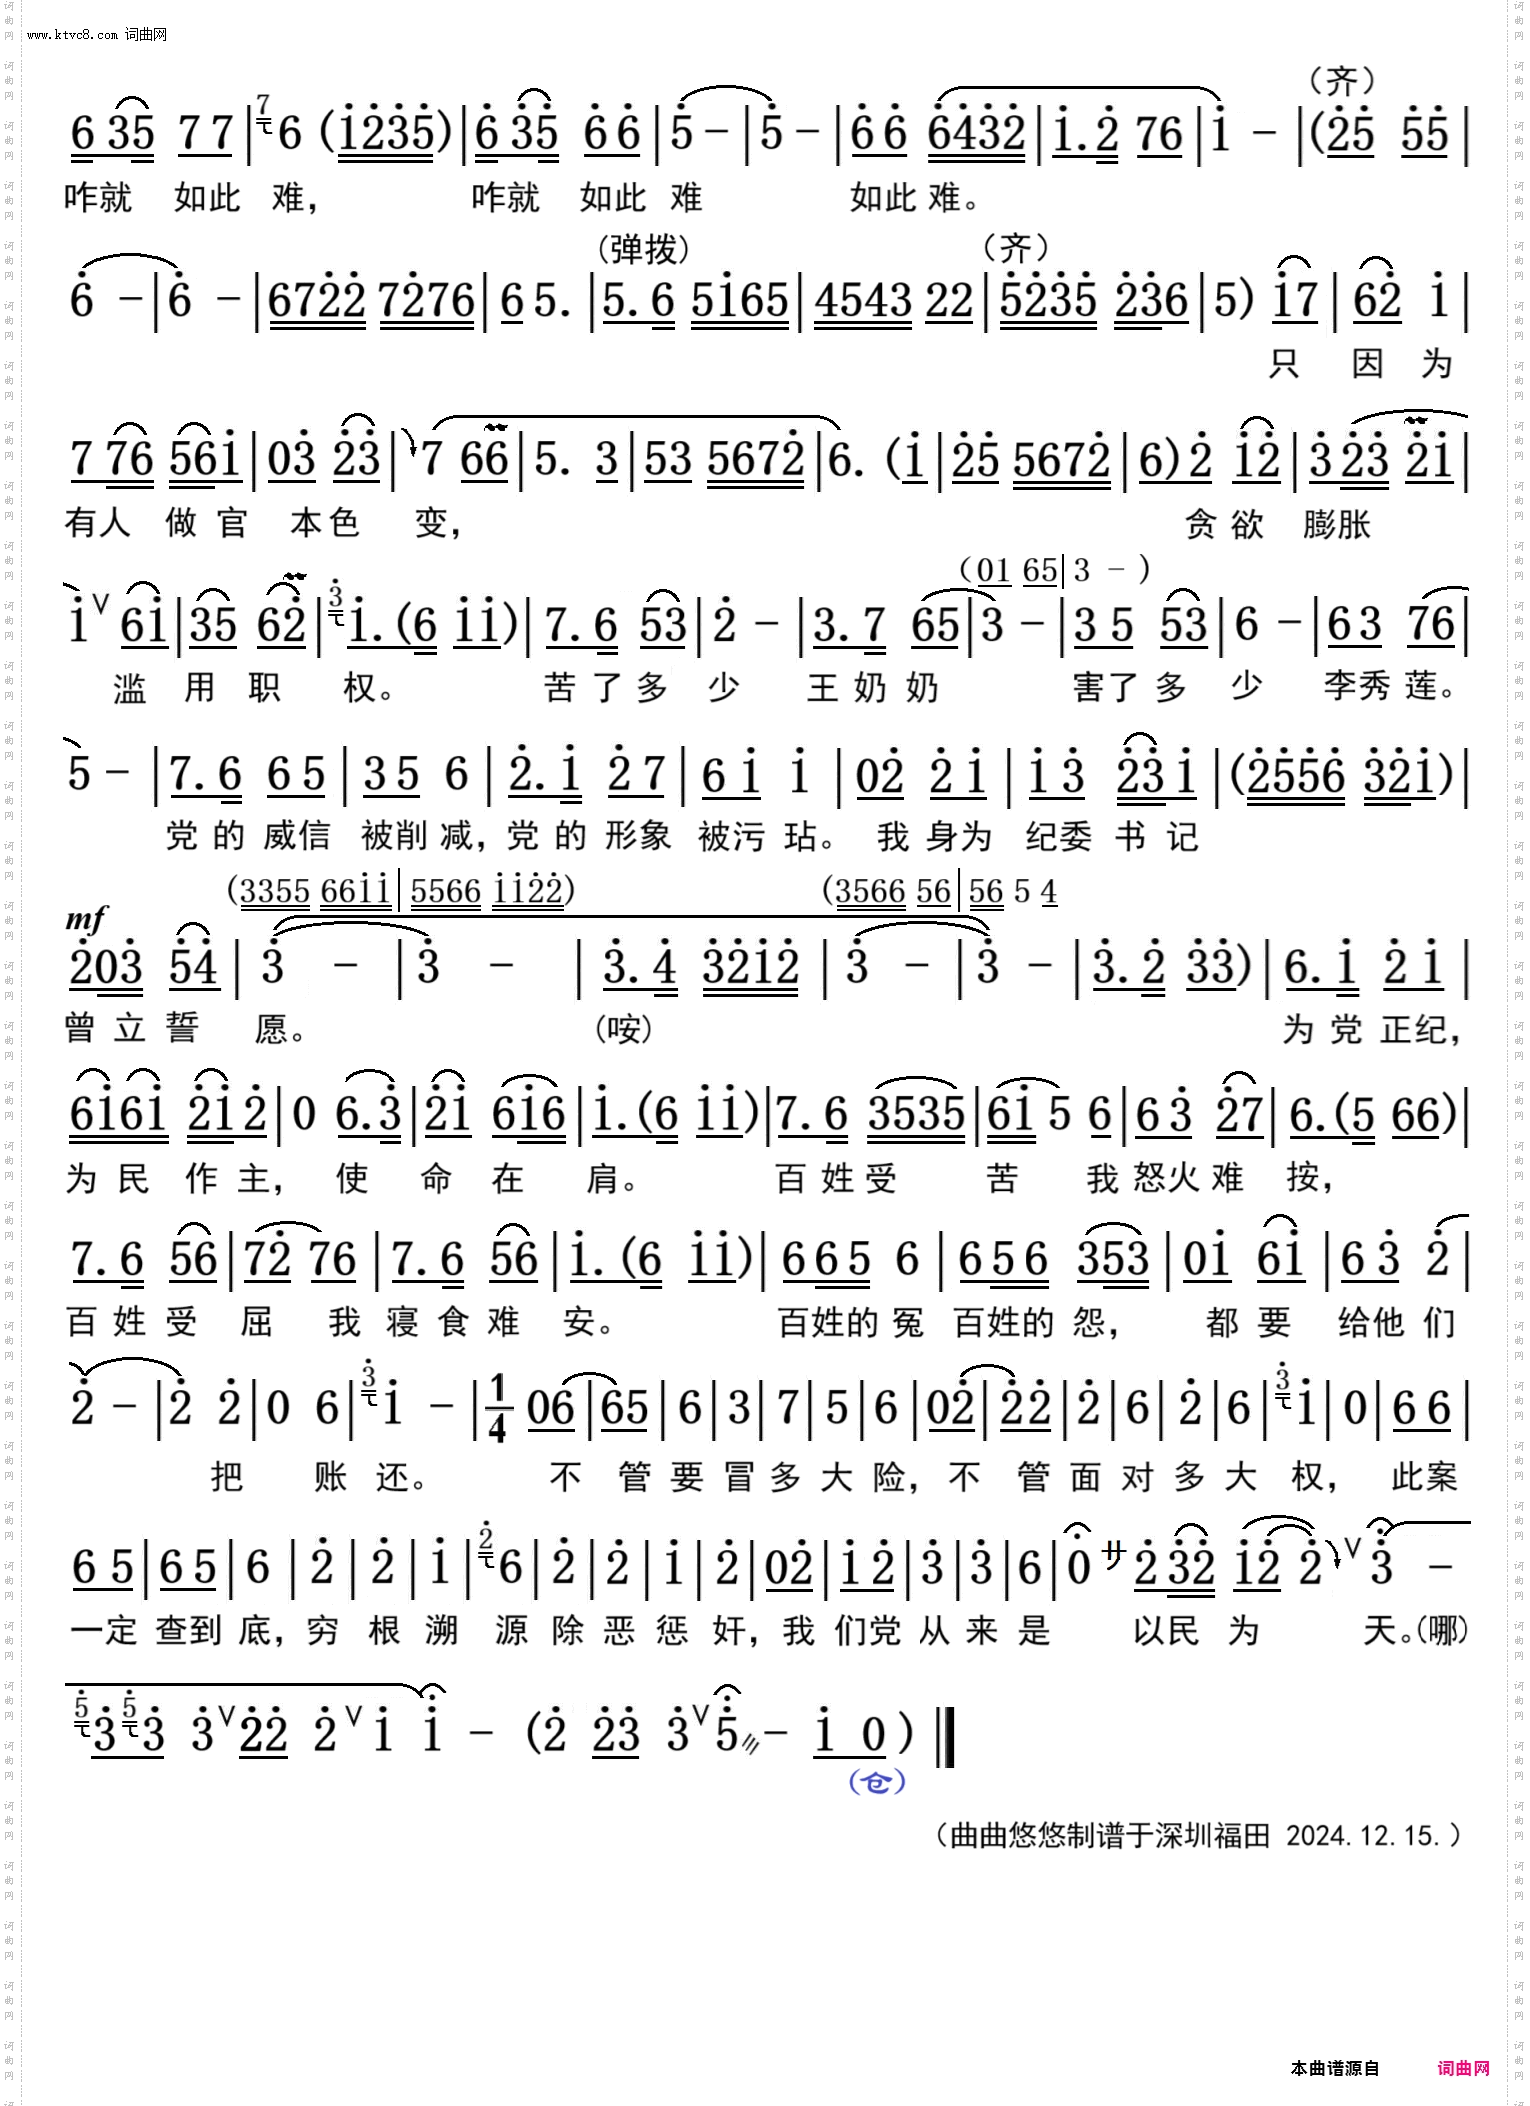 www.ktvc8.com 词曲网
(齐)
6 35 77 | 7 6 (1235) | 6 35 66 | 5 - | 5 - | 66 6432 | 1.2 76 | 1 - | (25 55 |
咋就 如此 难， 咋就 如此 难 如此 难。
(弹拨) (齐)
6 - | 6 - | 6722 7276 | 6 5. | 5.6 5165 | 4543 22 | 5235 236 | 5) 17 | 62 1 |
只 因 为
7 76 561 | 03 23 | 7 66 | 5. 3 | 53 5672 | 6. (1 | 25 5672 | 6) 2 12 | 3 23 21 |
有人 做 官 本色 变， 贪 欲 膨胀
(01 65 | 3 - )
1 ∨ 61 | 35 62 | 3 1.(6 11) | 7.6 53 | 2 - | 3.7 65 | 3 - | 35 53 | 6 - | 63 76 |
滥 用 职 权。 苦 了 多 少 王 奶 奶 害了 多 少 李秀 莲。
5 - | 7.6 65 | 35 6 | 2.1 27 | 61 1 | 02 21 | 13 231 | (2556 321) |
党 的 威信 被削 减，党 的 形象 被污 玷。 我 身为 纪委 书 记
(3355 6611 | 5566 1122) (3566 56 | 56 5 4
mf
203 54 | 3 - | 3 - | 3.4 3212 | 3 - | 3 - | 3.2 33) | 6.1 21 |
曾 立 誓 愿。 (咹) 为 党 正纪，
6161 212 | 0 6.3 | 21 616 | 1.(6 11) | 7.6 3535 | 61 5 6 | 63 27 | 6.(5 66) |
为 民 作 主， 使 命 在 肩。 百 姓 受 苦 我 怒火 难 按，
7.6 56 | 72 76 | 7.6 56 | 1.(6 11) | 665 6 | 656 353 | 01 61 | 63 2 |
百 姓 受 屈 我 寝 食 难 安。 百姓的 冤 百姓的 怨， 都 要 给他 们
2 - | 2 2 | 0 6 | 3 1 - | 1/4 06 | 65 | 6 | 3 | 7 | 5 | 6 | 02 | 22 | 2 | 6 | 2 | 6 | 3 1 | 0 | 66 |
把 账 还。 不 管 要 冒 多 大 险，不 管 面 对 多 大 权， 此案
65 | 65 | 6 | 2 | 2 | 1 | 2 6 | 2 | 2 | 1 | 2 | 02 | 12 | 3 | 3 | 6 | 0 サ 2 32 12 2 ∨ 3 -
一定 查到 底，穷 根 溯 源 除 恶 惩 奸，我 们党 从 来 是 以民 为 天。(哪)
5 3 5 3 3 ∨ 22 2 ∨ 1 1 - (2 23 3 ∨ 5 - 1 0 )
(仓)
（曲曲悠悠制谱于深圳福田 2024.12.15.）
本曲谱源自 词曲网